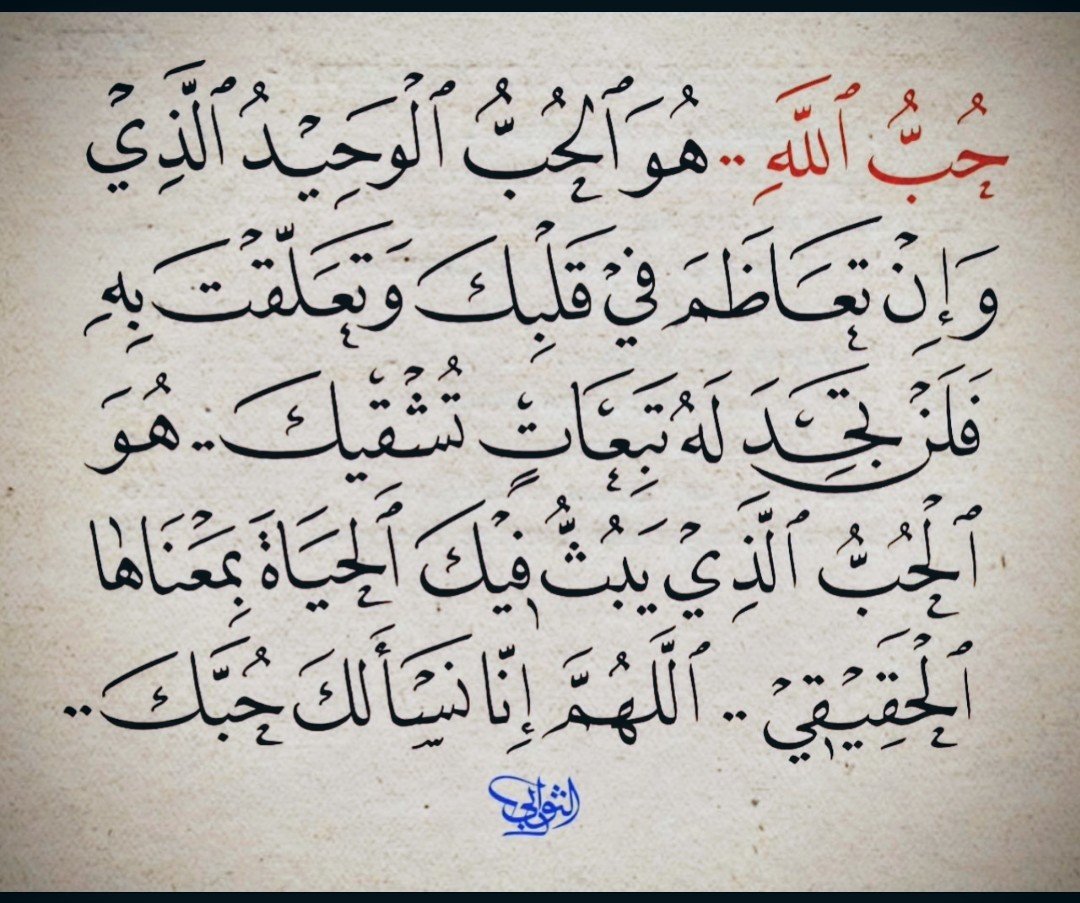 حُبُّ ٱللَّهِ .. هُوَ ٱلْحُبُّ ٱلْوَحِيْدُ ٱلَّذِيْ
وَإِنْ تَعَاظَمَ فِيْ قَلْبِكَ وَتَعَلَّقْتَ بِهِ
فَلَنْ تَجِدَ لَهُ تَبِعَاتٍ تُشْقِيكَ .. هُوَ
ٱلْحُبُّ ٱلَّذِيْ يَبُثُّ فِيْكَ ٱلْحَيَاةَ بِمَعْنَاهَا
ٱلْحَقِيْقِيْ .. ٱللَّهُمَّ إِنَّا نَسْأَلُكَ حُبَّكَ ..